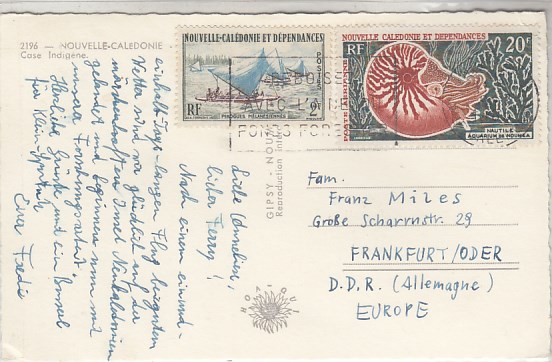 2196 — NOUVELLE-CALEDONIE -
Case Indigène.
NOUVELLE-CALÉDONIE ET DÉPENDANCES
POSTES
RF
2F
PIROGUES MÉLANÉSIENNES
NOUVELLE CALÉDONIE ET DÉPENDANCES
RF
20F
POSTE AÉRIENNE
NAUTILE
AQUARIUM DE NOUMÉA
GIPSY - NOU
Reproduction inter
Liebe Cornelia,
lieber Ferry!
Nach einem einund-
einhalb Tage langen Flug
Vetter sind wir glücklich auf der
märchenhaften Insel Neukaledonien
gelandet und beginnen nun mit
unserer Forschungsarbeit.
Herzliche Grüße und ein Bussel
für Klein-
Eure Fredi
Fam.
Franz Miles
Große Scharrnstr. 29
FRANKFURT/ODER
D.D.R. (Allemagne)
EUROPE